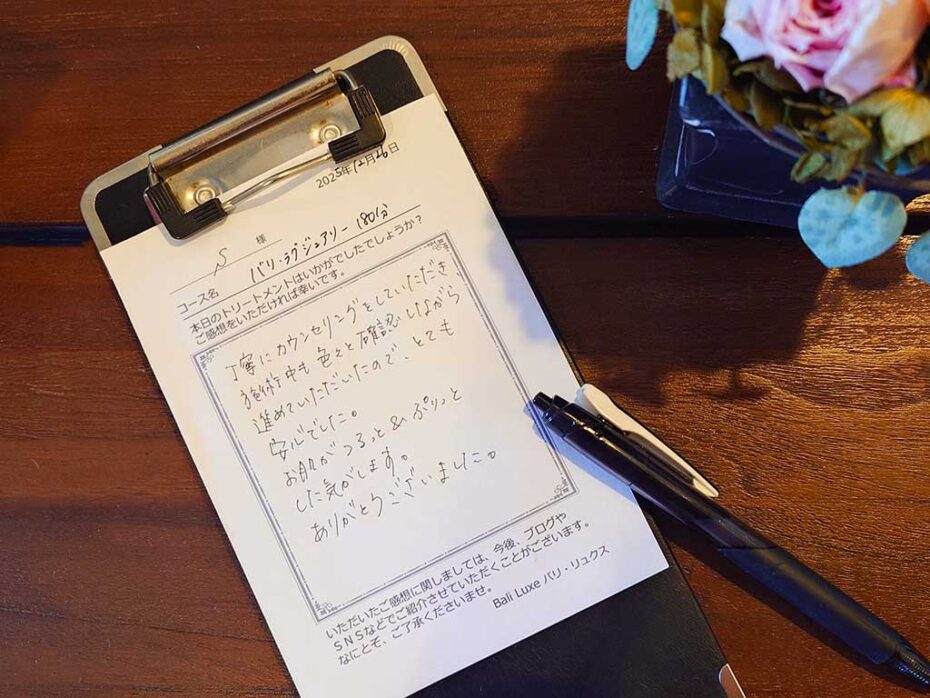 2025年12月26日
S 様
コース名 バリ・ラグジュアリー 180分
本日のトリートメントはいかがでしたでしょうか？
ご感想をいただければ幸いです。
丁寧にカウンセリングをしていただき、
施術中も色々と確認しながら
進めていただいたので、とても
安心でした。
お肌がつるっと&ぷりっと
した気がします。
ありがとうございました。
いただいたご感想に関しましては、今後、ブログや
ＳＮＳなどでご紹介させていただくことがございます。
なにとぞ、ご了承くださいませ。
Bali Luxe バリ・リュクス